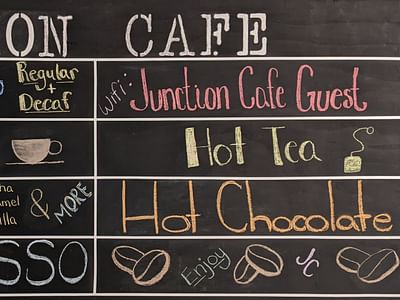 ON CAFE
Regular
+
Decaf
Wifi: Junction Cafe Guest
Hot Tea
& MORE
Hot Chocolate
SSO
Enjoy